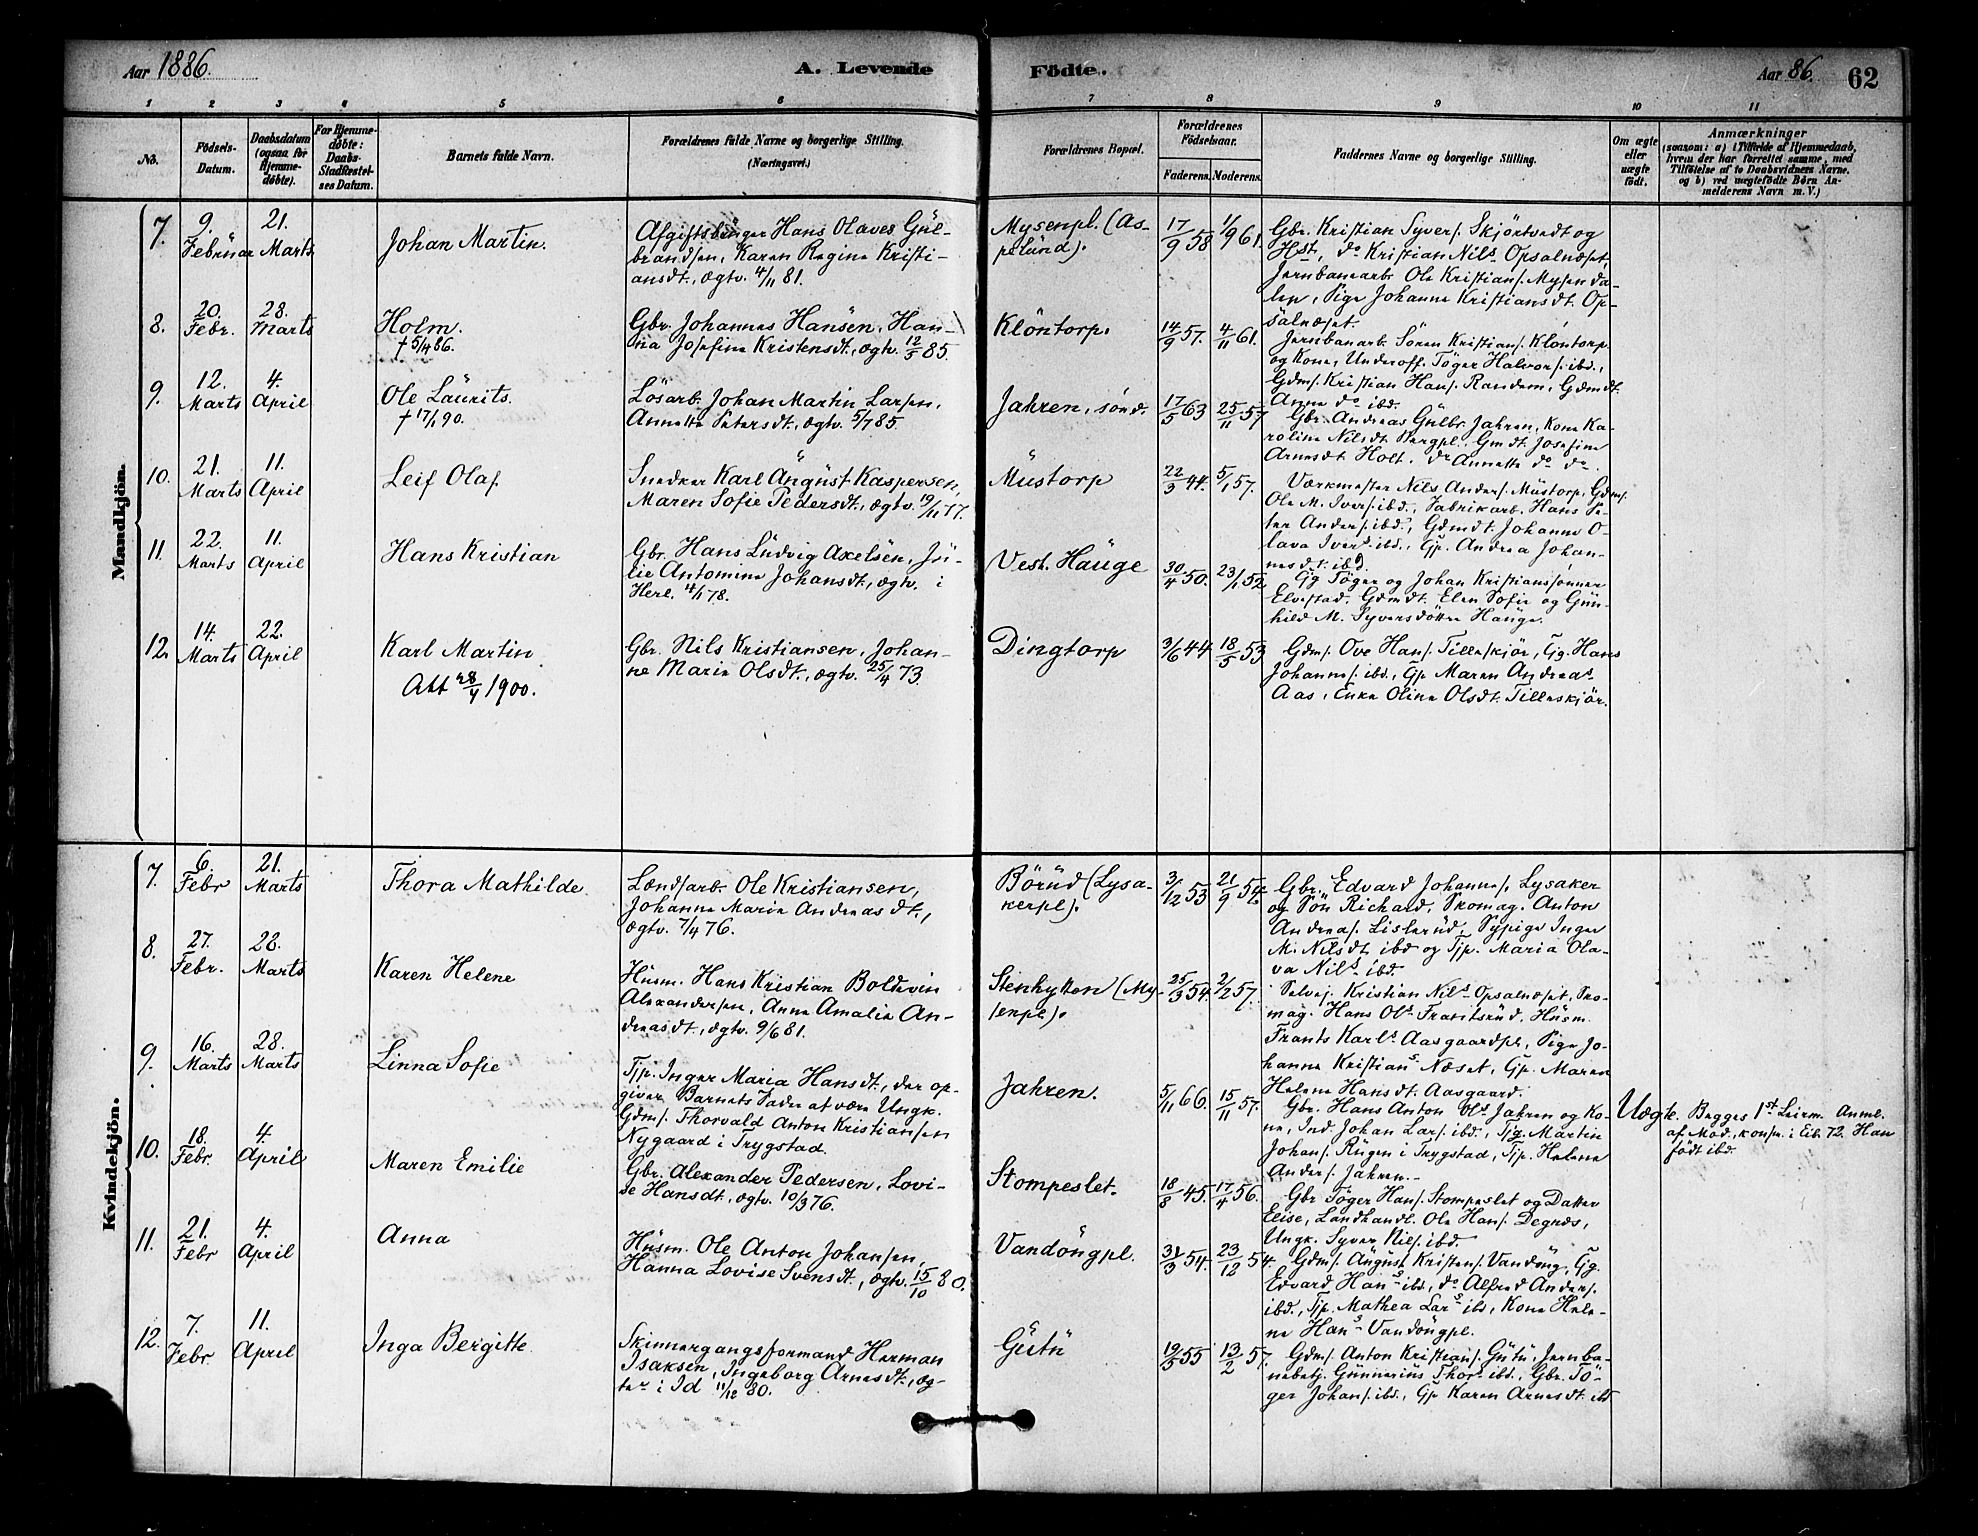 Aar 1886. A. Levende Födte. Aar 86. 62
1 2 3 4 5 6 7 8 9 10 11
No.
Födsels-
Datum.
Daabsdatum
(ogsaa for
Hjemme-
döbte).
For Hjemme-
döbte:
Daabs-
Stadfæstel-
ses Datum.
Barnets fulde Navn.
Forældrenes fulde Navne og borgerlige Stilling.
(Næringsvei.)
Forældrenes Bopæl.
Forældrenes
Födselsaar.
Faderens. Moderens.
Faddernes Navne og borgerlige Stilling.
Om ægte
eller
uægte
födt.
Anmærkninger
(saasom: a) i Tilfælde af Hjemmedaab,
hvem der har forrettet samme, med
Tilföielse af to Daabsvidners Navne.
og b) ved uægtefödte Börn An-
melderens Navn m. V.)
Mandkjön.
7.
9.
Februar
21.
Marts
Johan Martin.
Afgiftsbruger Hans Olaves Gul-
brandsen, Karen Regine Kristi-
ansdt., ægtv. 4/11 81.
Mysenpl. (As-
pelund).
17/9 58
1/9 61.
Gbr. Kristian Syvers. Skjörtvedt og
Hst., do Kristian Nils. Opsalnæset
Jernbanearb. Ole Kristians. Mysenda-
len, Pige Johanne Kristiansdt. Op-
salnæset.
8.
20.
Febr.
28.
Marts
Holm.
† 5/4 86.
Gbr. Johannes Hansen, Han-
na Josefine Kristensdt., ægtv. 12/5 85.
Klöntorp.
14/9 57.
4/11 61.
Jernbanearb. Sören Kristians. Klöntorp
og Kone, Underoff. Töger Halvors. ibd.,
Gdms. Kristian Hans. Randem, Gdmdt.
Anna do ibd.
9.
12.
Marts
4.
April
Ole Laurits.
† 17/1 90.
Lösarb. Johan Martin Larsen,
Annette Petersdt., ægtv. 5/7 85.
Jahren, sönd.
17/5 63
25/11 57
Gbr. Andreas Gulbr. Jahren, Kone Ka-
roline Nilsdt. Bergpl., Gmdt. Josefine
Arnesdt. Holt. do Annette do do.
10.
21.
Marts
11.
April
Leif Olaf.
Snedker Karl August Kaspersen,
Maren Sofie Pedersdt., ægtv. 19/11 77.
Mustorp
22/3 44.
5/1 57.
Værkmester Nils Anders. Mustorp, Gdms.
Ole M. Ivers. ibd., Fabrikarb. Hans Pe-
ter Anders. ibd., Gdmdt. Johanne O-
lava Ivers. ibd., Gp. Andrea Johan-
nesdt. ibd.
11.
22.
Marts
11.
April
Hans Kristian
Gbr. Hans Ludvig Axelsen, Ju-
lie Antomine Johansdt., ægtv. i
Herl. 4/1 78.
Vest. Hauge
30/4 50.
23/1 52
Gg Töger og Johan Kristianssönner
Elvestad, Gdmdt. Elen Sofie og Gun-
hild M. Syversdöttre Hauge.
12.
14.
Marts
22.
April
Karl Martin
Att 28/4 1900.
Gbr. Nils Kristiansen, Johan-
ne Marie Olsdt., ægtv. 25/4 73.
Dingtorp
3/6 44
18/5 53
Gdms. Ove Hans. Tilleskjör, Gg. Hans
Johannes. ibd., Gp Maren Andreas.
Aas, Enke Oline Olsdt. Tilleskjör.
Kvindekjön.
7.
6.
Febr
21.
Marts
Thora Mathilde
Lændsarb. Ole Kristiansen,
Johanne Marie Andreasdt.,
ægtv. 7/4 76.
Börud (Lysa-
kerpl).
3/12 53
21/9 54.
Gbr. Edvard Johannes. Lysaker
og Sön Richard, Skomag. Anton
Andreas. Lislerud, Sypige Inger
M. Nilsdt. ibd og Tjp. Maria Ola-
va Nils. ibd.
8.
27.
Febr.
28.
Marts
Karen Helene
Husm. Hans Kristian Boldvin
Alexandersen, Anne Amalie An-
dreasdt., ægtv. 9/6 81.
Stenhytten (My-
senpl).
25/3 54.
2/2 57.
Selvej. Kristian Nils. Opsalnæset, Sko-
mag. Hans Ols. Frantsrud, Husm.
Frants Karls. Aasgaardpl., Pige Jo-
hanne Kristians. Næset, Gp. Maren
Helene Hansdt. Aasgaard.
9.
16.
Marts
28.
Marts
Linna Sofie
Tjp. Inger Maria Hansdt., der op-
giver Barnets Fader at være Ungk.
Gdms. Thorvald Anton Kristiansen
Nygaard i Trygstad.
Jahren.
5/11 66.
15/11 57.
Gbr. Hans Anton Ols. Jahren og Ko-
ne, Ind. Johan Lars. ibd., Tjg. Martin
Johans. Rugen i Trygstad, Tjp. Helene
Anders. Jahren.
Uægte.
Begges 1st Leirm. Anml.
af Mod., konfm. i Eib. 72. Han
födt ibd.
10.
18.
Febr.
4.
April
Maren Emilie
Gbr. Alexander Pedersen, Lovi-
se Hansdt., ægtv. 10/3 76.
Stompeslet.
18/8 45.
17/4 56.
Gbr Töger Hans. Stompeslet og Datter
Elise, Landhandl. Ole Hans. Degnæs,
Ungk. Syver Nils. ibd.
11.
21.
Febr
4.
April
Anna
Husm. Ole Anton Johansen,
Hanna Lovise Svensdt., ægtv. 15/10 80.
Vandöngpl.
31/3 54.
23/12 54.
Gdms. August Kristens. Vandöng, Gg.
Edvard Hans. ibd., do Alfred Anders.
ibd., Tjp. Mathea Lars. ibd, Kone Hele-
ne Hans. Vandöngpl.
12.
7.
Febr.
11.
April
Inga Bergitte
Skinnergangsformand Herman
Isaksen, Ingeborg Arnesdt., æg-
tev. i Id 11/12 80.
Gutu
19/5 55
13/2 57.
Gdms. Anton Kristians. Gutu, Jernba-
nebetj. Gunnerius Thors. ibd., Gbr. Tö-
ger Johans. ibd., Gp Karen Arnesdt. ibd